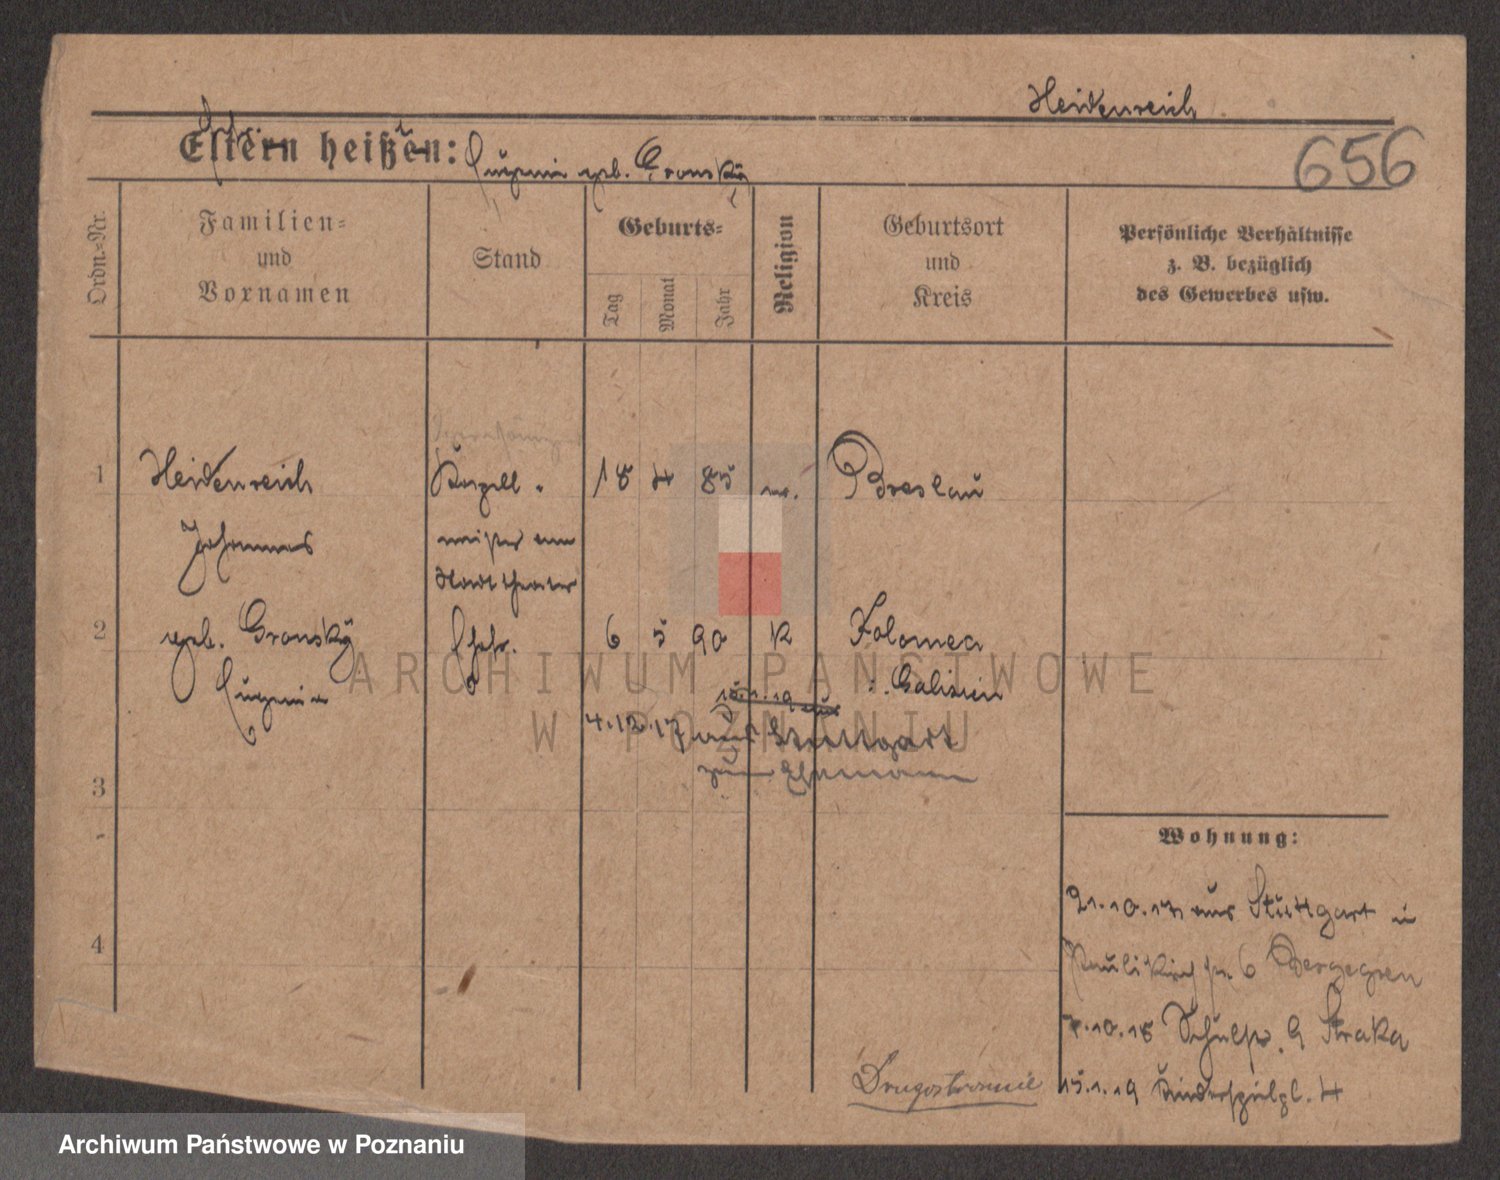 Heidenreich
656
Eltern heißen: Eugenie geb. Gronský
Ordn.-Nr.
Familien- und Vornamen
Stand
Geburts-
Tag
Monat
Jahr
Religion
Geburtsort und Kreis
Persönliche Verhältnisse z. B. bezüglich des Gewerbes usw.
1 Heidenreich Kapell- 18 4 85 ev. Breslau
Johannes meister am
Stadttheater
2 geb. Gronský Ehefr. 6 5 90 K Kolomea
Eugenie i. Galizien
15.1.19 aus
4.12.17 aus Stuttgart
zum Ehemann
3
4
Wohnung:
21.10.17 aus Stuttgart in
Paulikirchstr. 6
7.10.18 Schulstr. 9 Straka
15.1.19 Kinderspielpl. 4
Drugostronnie
ARCHIWUM PAŃSTWOWE
W POZNANIU
Archiwum Państwowe w Poznaniu